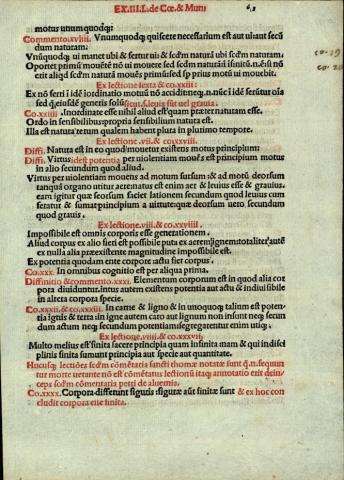 EX.IIII.L.de Cœ. & Mun
motus unumquodq;
Commento.xviii. Vnumquodq; quiescere necessarium est aut uiaut secũ
dum naturam.
Vnũquodq; ui manet ubi & fertur ui: & scđm naturã ubi scđm naturam.
Oportet primũ mouẽte nõ ui mouere sed scđm naturã
erit aliqđ scđm naturã mouẽs primũ: sed prius motũ ui mouebit.
Ex lectione iuxta & co.xxiii:
Ex nõ ferri idẽ inordinato motuũ nõ accidit: neq.
sed q, eiusdẽ generis solũ sicut.s. leuia siue uel grauia.
Co.xxiiii. Inordinate esse nihil aliud est quam præter naturam esse.
Ordo in sensibilibus propria sensibilium natura est.
Illa est natura rerum qualem habent plura in plurimo tempore.
Ex lectione.vii.& co.xxviii.
Diffi. Natura est in eo quod mouetur existens motus principium:
Diffi. Virtus idest potentia per uiolentiam mouẽs est principium motus
in alio secundum quod aliud.
Virtus per uiolentiam mouens ad motum sursum: & ad motũ deorsum
tanquã organo utitur aere: natus est enim aer & leuius esse & grauius.
eam igitur quæ sursum faciet lationem secundum quod leuius cum
feratur & sumat principium a uirtute: quæ deorsum uero secundum
quod grauis.
Ex lectione.viii.& co.xxviiii.
Impossibile est omnis corporis esse generationem.
Aliud corpus ex alio fieri est possibile puta ex aere ignem: totaliter autẽ
ex nulla alia præexistente magnitudine impossibile est.
Ex potentia quodam ente corpore actu fiet corpus.
Co.xxx. In omnibus cognitio est per aliqua prima.
Diffinitio & commento.xxxi. Elementum corporum est in quod alia cor
pora diuiduntur. intus autem existens potentia aut actu & indiuisibile
in altera corpore specie.
Co.xxxii.& co.xxxiii. In carne & ligno & in unoquoq; talium est poten-
tia ignis & terra: in igne autem caro aut lignum non insunt neq; secun
dum actum neq; secundum potentiam: segregarentur enim utiq;
Ex lectione.viiii.& co.xxxvii.
Multo melius est finita facere principia quam infinita nam & qui indeci
plinis finita sumunt principia aut specie aut quantitate.
Hucusq; lectiões scđm cõmẽtaria sancti thomæ notatæ sunt q.n. sequun
tur morte uetante nõ est cõmẽtatus lectionũ itaq; annotatio erit dein-
ceps scđm cõmentaria petri de aluernia.
Co.xxxx. Corpora differunt figuris: figuræ aũt finitæ sunt & ex hoc con
cludit corpora esse finita.
co-19
co-20